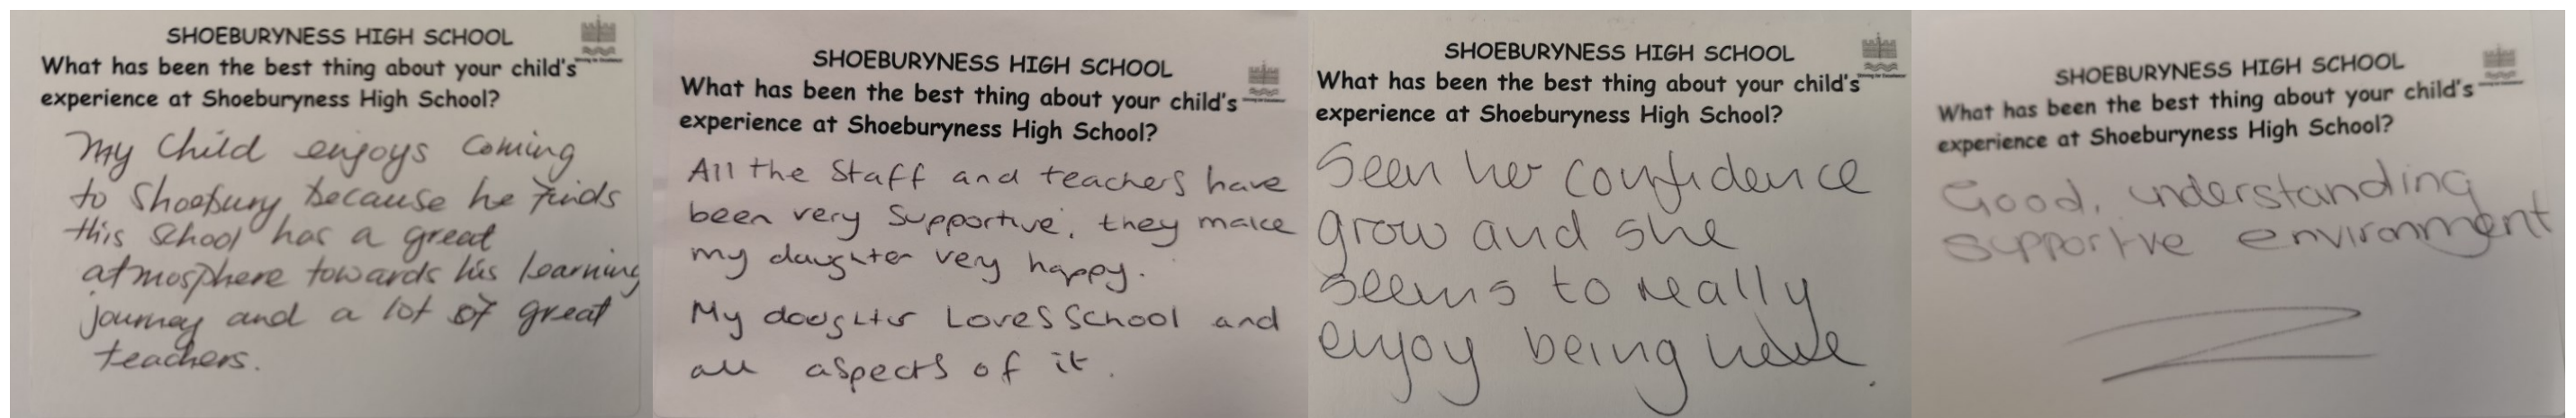 SHOEBURYNESS HIGH SCHOOL
What has been the best thing about your child's
experience at Shoeburyness High School?
My Child enjoys coming
to Shoebury because he finds
this school has a great
atmosphere towards his learning
journey and a lot of great
teachers.
SHOEBURYNESS HIGH SCHOOL
What has been the best thing about your child's
experience at Shoeburyness High School?
All the Staff and teachers have
been very Supportive, they make
my daughter very happy.
My daughter Loves School and
all aspects of it.
SHOEBURYNESS HIGH SCHOOL
What has been the best thing about your child's
experience at Shoeburyness High School?
Seen her confidence
grow and she
seems to really
enjoy being here.
SHOEBURYNESS HIGH SCHOOL
What has been the best thing about your child's
experience at Shoeburyness High School?
Good, understanding
supportive environment